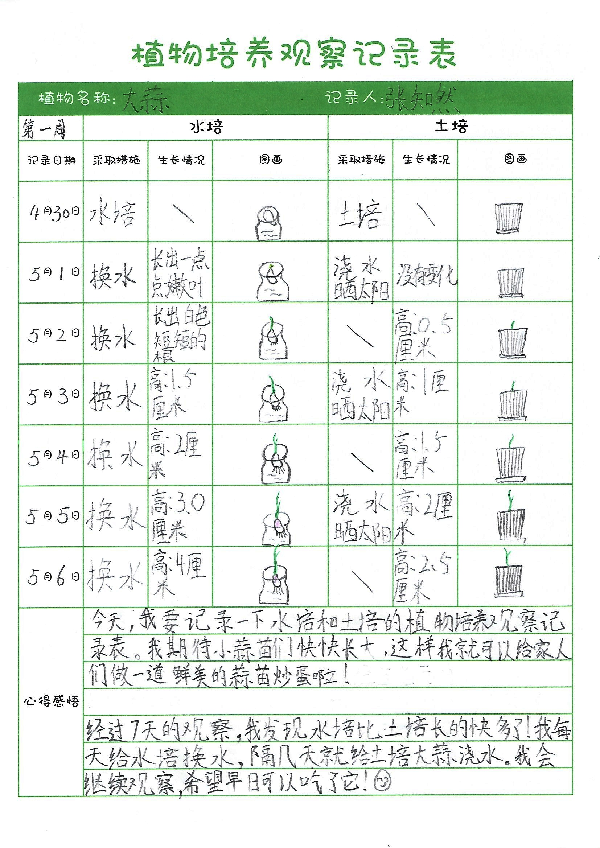 植物培养观察记录表
植物名称：大蒜 记录人：张知然
第一周 水培 土培
记录日期 采取措施 生长情况 图画 采取措施 生长情况 图画
4月30日 水培 \ 土培 \
5月1日 换水 长出一点点嫩叶 浇水晒太阳 没有变化
5月2日 换水 长出白色短短的根 \ 高:0.5厘米
5月3日 换水 高:1.5厘米 浇水晒太阳 高:1厘米
5月4日 换水 高:2厘米 \ 高:1.5厘米
5月5日 换水 高:3.0厘米 浇水晒太阳 高:2厘米
5月6日 换水 高:4厘米 \ 高:2.5厘米
心得感悟
今天,我要记录一下水培和土培的植物培养观察记
录表。我期待小蒜苗们快快长大,这样我就可以给家人
们做一道鲜美的蒜苗炒蛋啦!
经过7天的观察,我发现水培比土培长的快多了!我每
天给水培换水,隔几天就给土培大蒜浇水。我会
继续观察,希望早日可以吃了它!